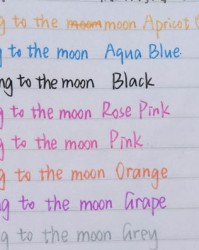 g to the moon Apricot
to the moon Aqua Blue
ng to the moon Black
g to the moon Rose Pink
g to the moon Pink
g to the moon Orange
ng to the moon Grape
g to the moon Grey